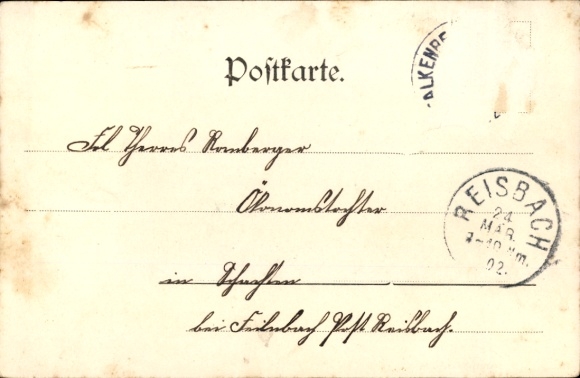 Postkarte.
FALKENBE
Frl Therres Romberger
Ökonomstochter
in Schachten
bei Feilnbach Post Reisbach.
REISBACH
24
MÄR.
7-10 Nm.
02.